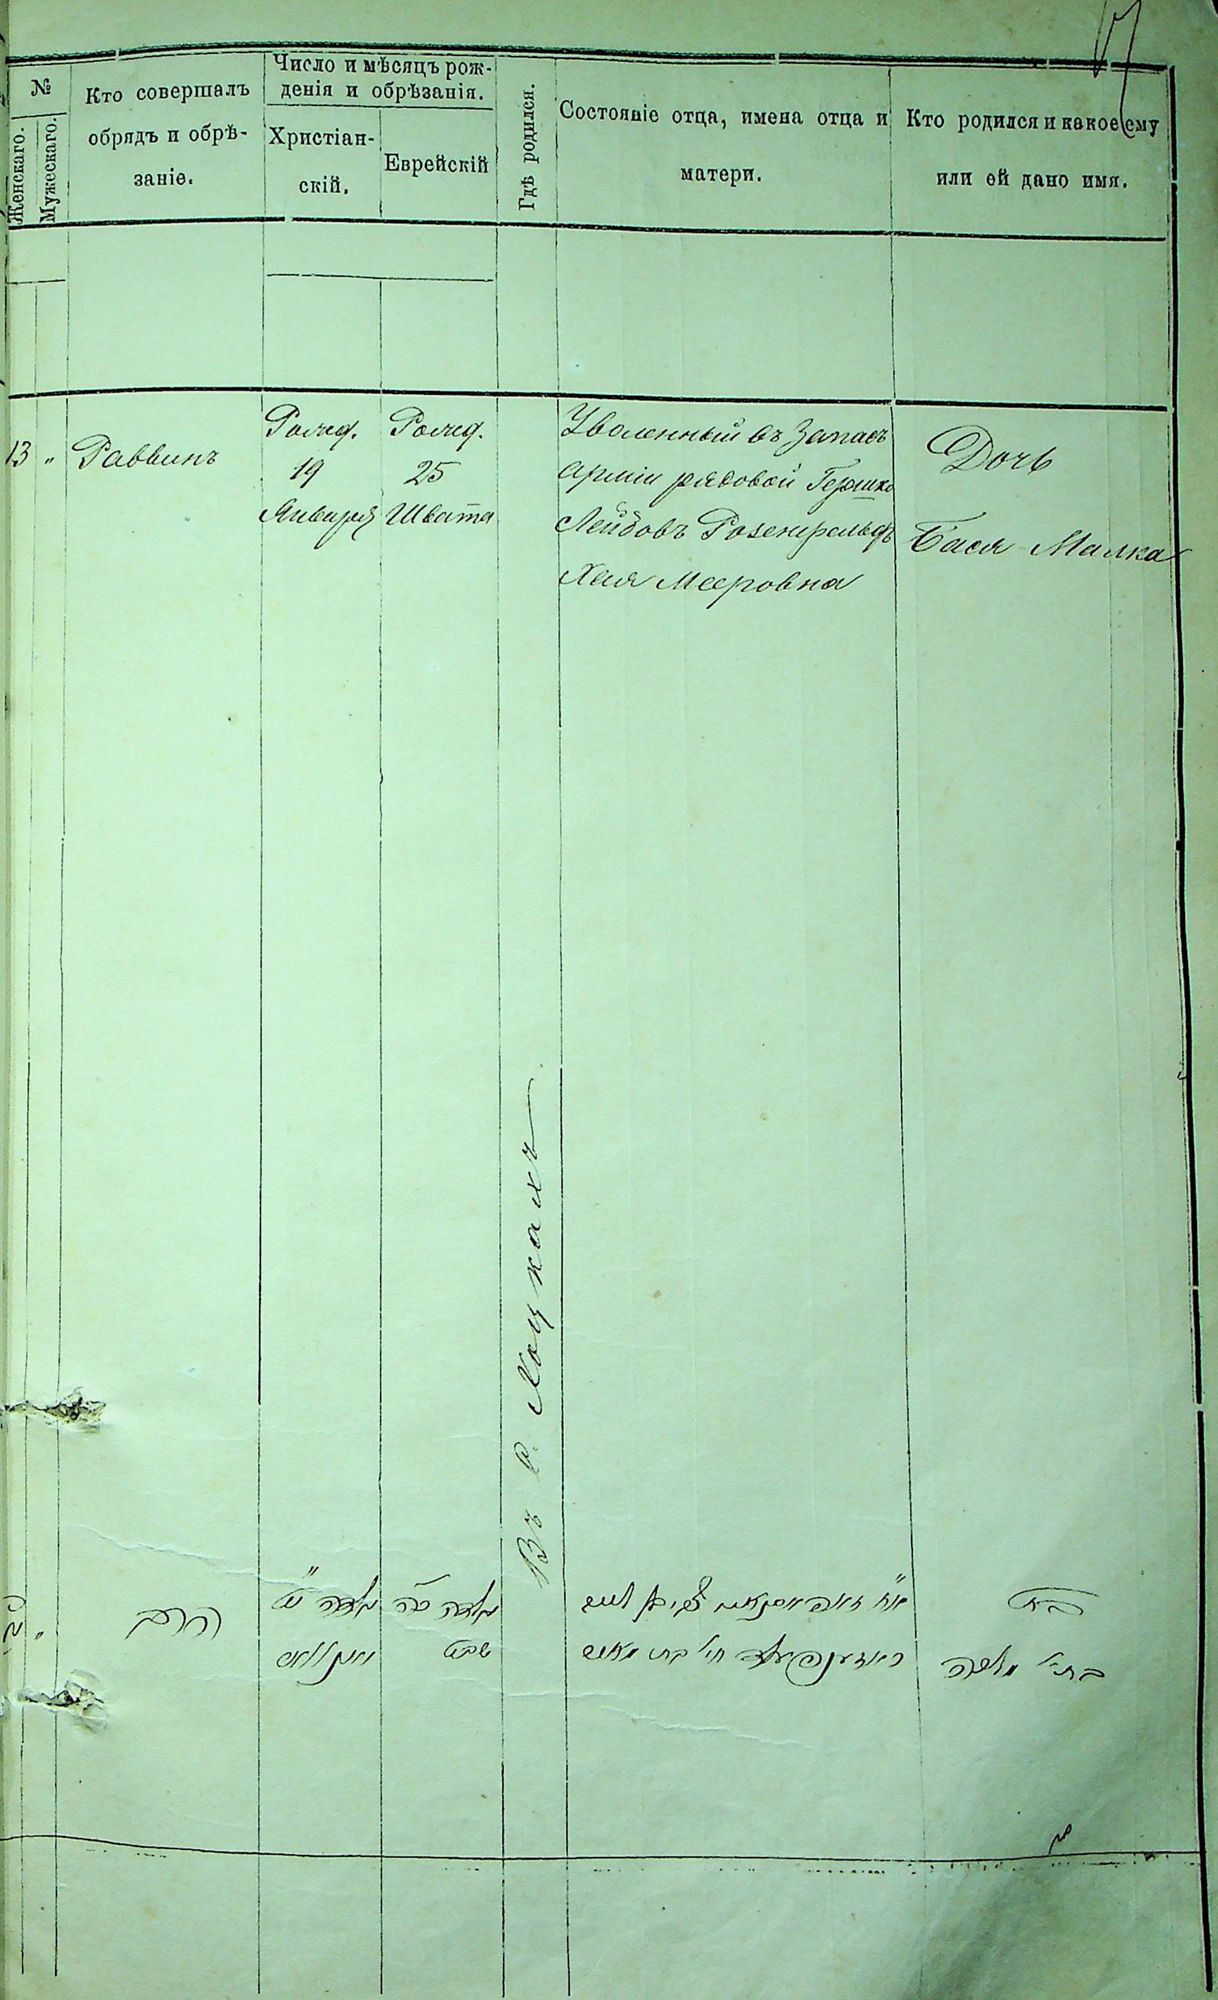 №
Женскаго.
Мужескаго.
Кто совершалъ
обрядъ и обрѣ-
заніе.
Число и мѣсяцъ рож-
денія и обрѣзанія.
Христіан-
скій.
Еврейскій
Гдѣ родился.
Состояніе отца, имена отца и
матери.
Кто родился и какое ему
или ей дано имя.
13 "
Раввинъ
Рожд.
19
Января
Рожд.
25
Швата
Уволенный въ Запасъ
арміи рядовой Гершко
Лейбовъ Розенфельдъ
Хая Мееровна
Дочь
Бася Малка
Въ с. Хоцкахъ
הרב
שבט
בת